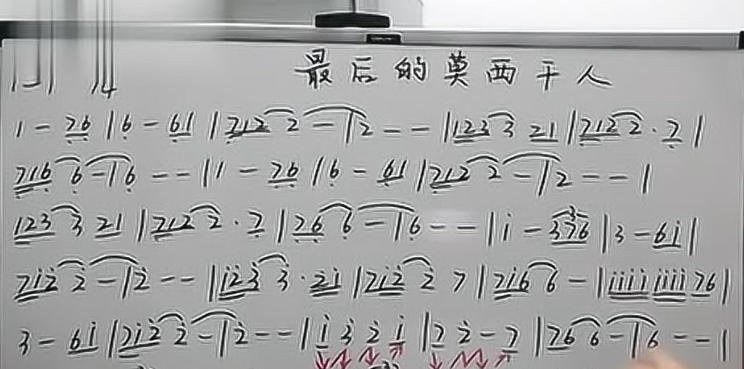 最后的莫西干人
1 - 76 | 6 - 61 | 712 2 - | 2 - - | 123 3 21 | 712 2 . 7 |
716 6 - | 6 - - | 1 - 76 | 6 - 61 | 712 2 - | 2 - - |
123 3 21 | 712 2 . 7 | 76 6 - | 6 - - | i - 376 | 3 - 6i |
7i2 2 - | 2 - - | i23 3 . 2i | 7i2 2 7 | 7i6 6 - | iiii iiii 76 |
3 - 6i | 7i2 2 - | 2 - - | i 3 2 i | 7 2 - 7 | 766 - | 6 - - |